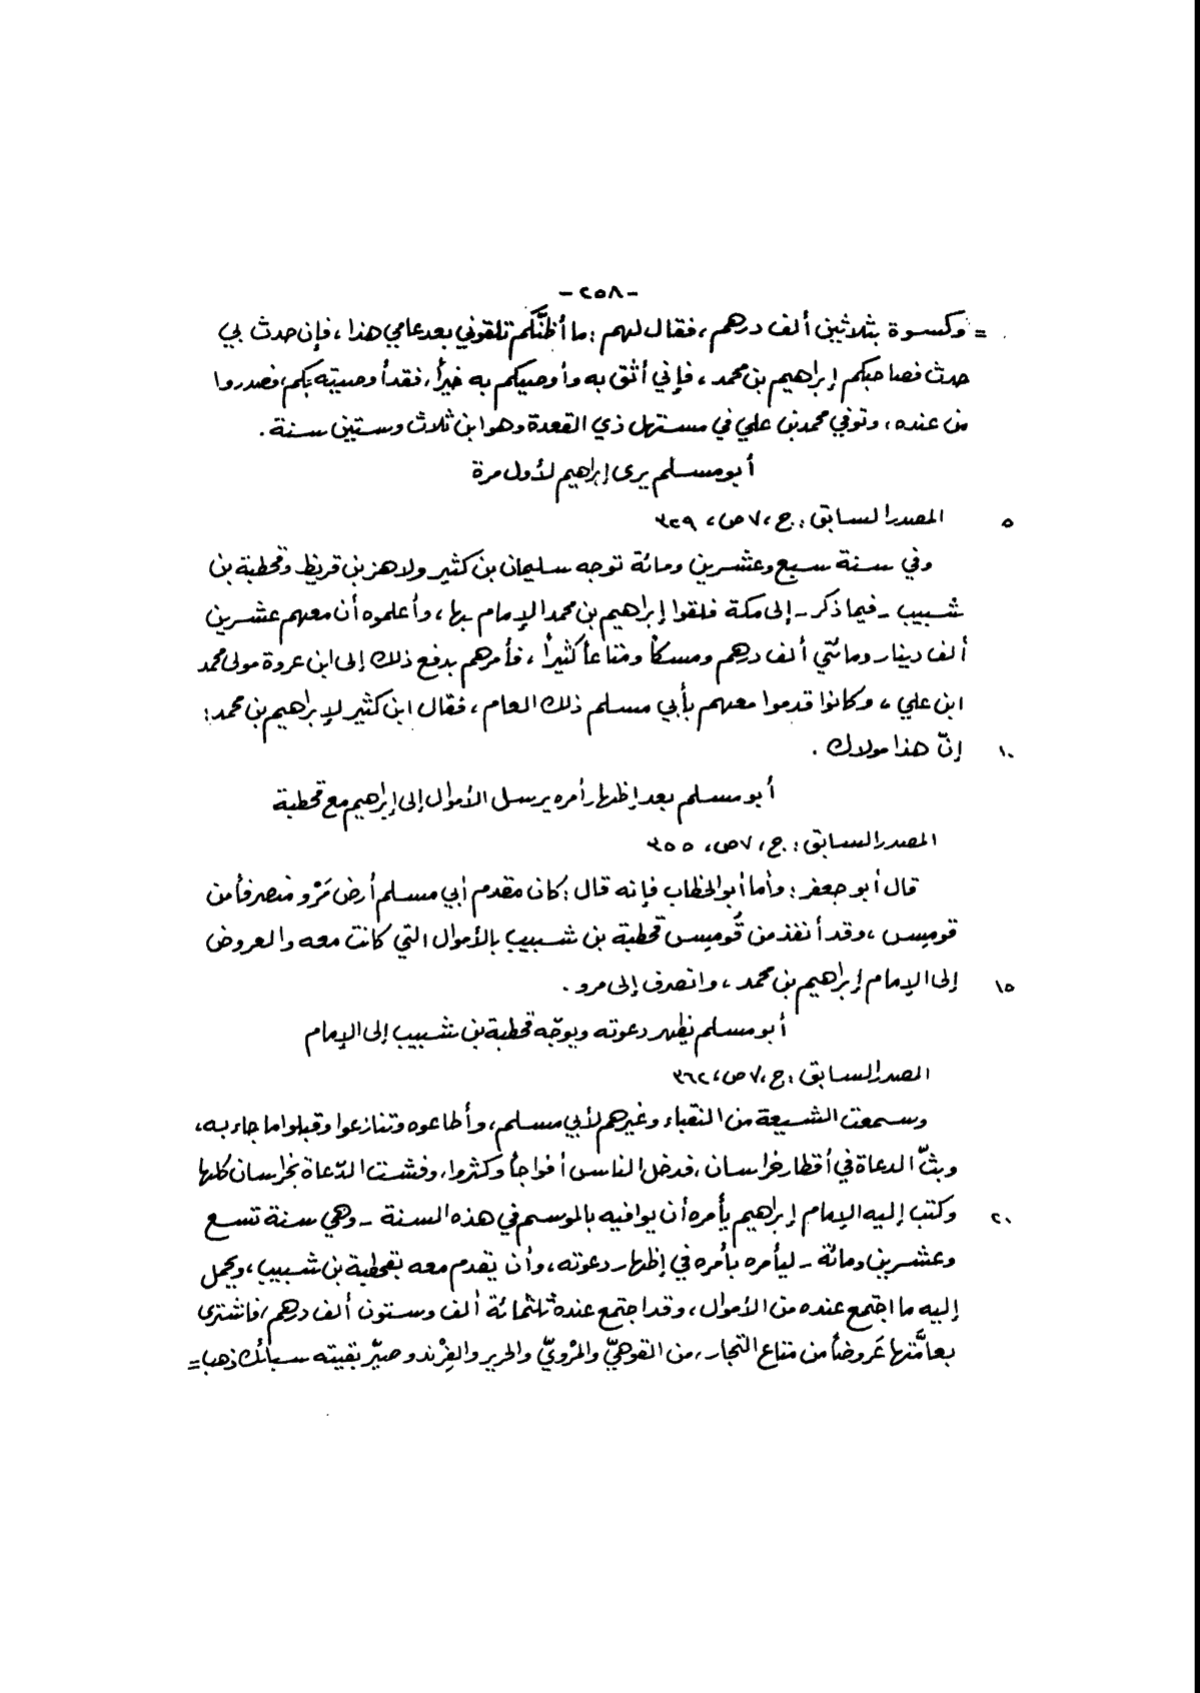 -٢٥٨-
= وكسوة بثلاثين ألف درهم، فقال لهم: ما أظنَّكم تلقوني بعد عامي هذا، فإن حدث بي
حدث فصاحبكم إبراهيم بن محمد، فإني أثق به وأوصيكم به خيراً، فقد أوصيته بكم، فصدروا
من عنده، وتوفي محمد بن علي في مستهل ذي القعدة وهو ابن ثلاث وستين سنة.
أبو مسلم يرى إبراهيم لأول مرة
٥ المصدر السابق: ج، ٧ ص، ٣٢٩
وفي سنة سبع وعشرين ومائة توجه سليمان بن كثير ولاهز بن قريظ وقحطبة بن
شبيب - فيما ذكر - إلى مكة فلقوا إبراهيم بن محمد الإمام بها، وأعلموه أن معهم عشرين
ألف دينار ومائتي ألف درهم ومسكاً ومتاعاً كثيراً، فأمرهم بدفع ذلك إلى ابن عروة مولى محمد
ابن علي، وكانوا قدموا معهم بأبي مسلم ذلك العام، فقال ابن كثير لإبراهيم بن محمد:
١٠ إنّ هذا مولاك.
أبو مسلم بعد إظهار أمره يرسل الأموال إلى إبراهيم مع قحطبة
المصدر السابق: ج، ٧ ص، ٣٥٥
قال أبو جعفر: وأما أبو الخطاب فإنه قال: كان مقدم أبي مسلم أرض مَرْو منصرفاً من
قوميس، وقد أنفذ من قُوميس قحطبة بن شبيب بالأموال التي كانت معه والعروض
١٥ إلى الإمام إبراهيم بن محمد، وانصرف إلى مرو.
أبو مسلم يظهر دعوته ويوجّه قحطبة بن شبيب إلى الإمام
المصدر السابق: ج، ٧ ص، ٣٦٢
وسمعت الشيعة من النقباء وغيرهم لأبي مسلم، وأطاعوه وتنازعوا وقبلوا ما جاء به،
وبثّ الدعاة في أقطار خراسان، فدخل الناس أفواجاً وكثروا، وفشت الدّعاة بخراسان كلها
٢٠ وكتب إليه الإمام إبراهيم يأمره أن يوافيه بالموسم في هذه السنة - وهي سنة تسع
وعشرين ومائة - ليأمره بأمره في إظهار دعوته، وأن يقدم معه بقحطبة بن شبيب، ويحمل
إليه ما اجتمع عنده من الأموال، وقد اجتمع عنده ثلثمائة ألف وستون ألف درهم، فاشترى
بعامَّتها عَروضاً من متاع التجار، من القوهيّ والمرْويّ والحرير والفِرْند وصيّر بقيته سبائك ذهب =